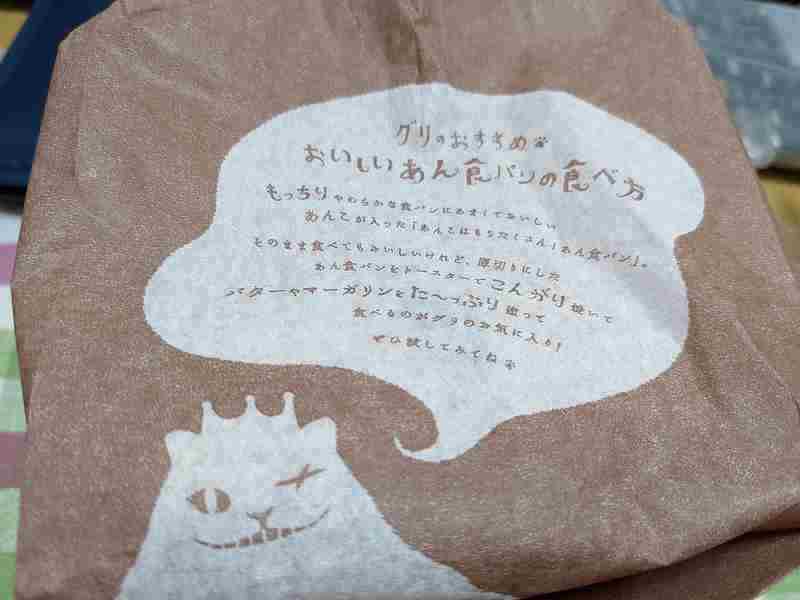 グリのおすすめ
おいしいあん食パンの食べ方
もっちりやわらかな食パンにあまくておいしい
あんこが入った「あんこはもりだくさん！あん食パン」。
そのまま食べてもおいしいけれど、厚切りにした
あん食パンをトースターでこんがり焼いて
バターやマーガリンをた〜っぷり塗って
食べるのがグリのお気に入り！
ぜひ試してみてね